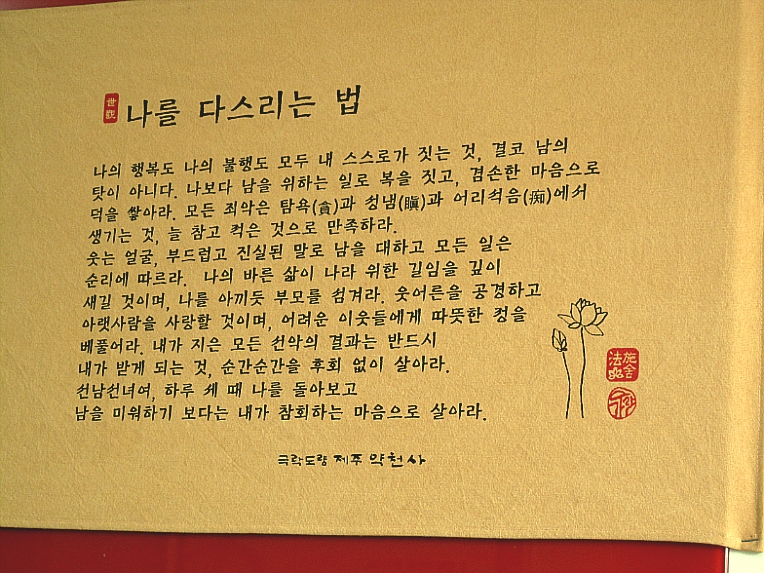 나를 다스리는 법
나의 행복도 나의 불행도 모두 내 스스로가 짓는 것, 결코 남의
탓이 아니다. 나보다 남을 위하는 일로 복을 짓고, 겸손한 마음으로
덕을 쌓아라. 모든 죄악은 탐욕(貪)과 성냄(瞋)과 어리석음(痴)에서
생기는 것, 늘 참고 적은 것으로 만족하라.
웃는 얼굴, 부드럽고 진실된 말로 남을 대하고 모든 일은
순리에 따르라. 나의 바른 삶이 나라 위한 길임을 깊이
새길 것이며, 나를 아끼듯 부모를 섬겨라. 웃어른을 공경하고
아랫사람을 사랑할 것이며, 어려운 이웃들에게 따뜻한 정을
베풀어라. 내가 지은 모든 선악의 결과는 반드시
내가 받게 되는 것, 순간순간을 후회 없이 살아라.
선남선녀여, 하루 세 때 나를 돌아보고
남을 미워하기 보다는 내가 참회하는 마음으로 살아라.
극락도량 제주 약천사